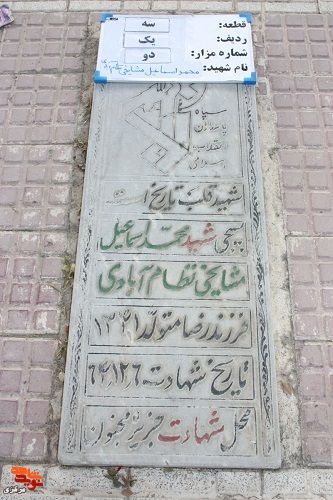 قطعه: سه
ردیف: یک
شماره مزار: دو
نام شهید: محمد اسماعیل مشایخی
سپاه
پاسداران
انقلاب
اسلامی
شهید قلب تاریخ است
بسیجی شهید محمد اسماعیل
مشایخی نظام آبادی
فرزند رضا متولد ۱۳۴۱
تاریخ شهادت ۶۳٫۱۲٫۶
محل شهادت جزیره مجنون